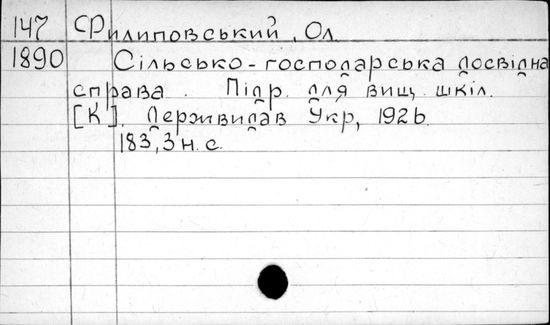 147 Филиповський, Ол.
1890 Сільсько-господарська досвідна
справа. Підр. для вищ. шкіл.
[К]. Держвидав Укр, 1926.
183, 3 н. с.